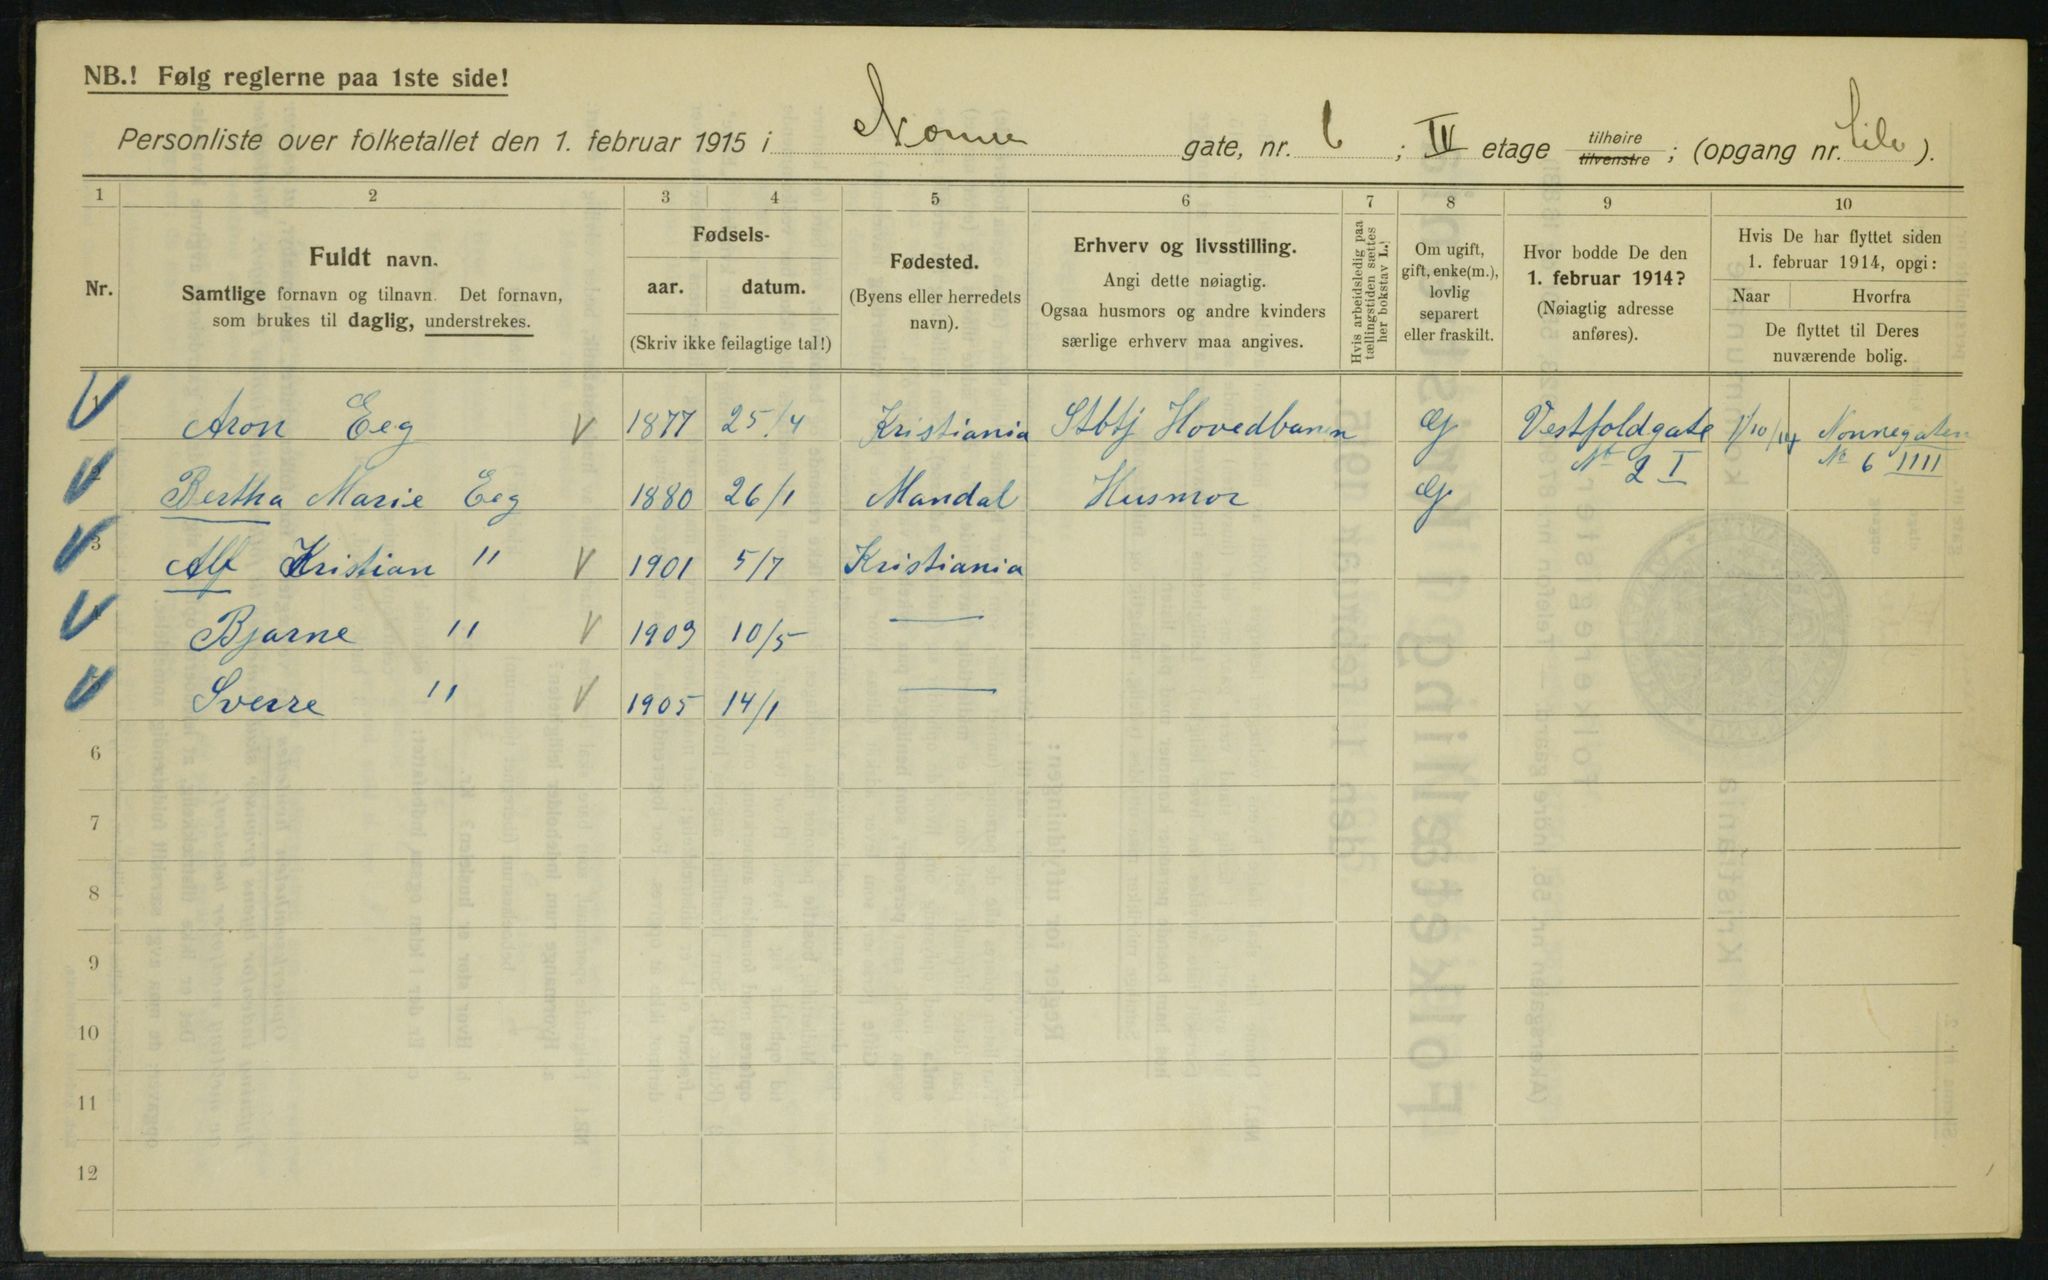 NB.! Følg reglerne paa 1ste side!
Personliste over folketallet den 1. februar 1915 i Nonne gate, nr. 6 ; IV etage tilhøire tilvenstre ; (opgang nr. ).
1 2 3 4 5 6 7 8 9 10
Nr.
Fuldt navn.
Samtlige fornavn og tilnavn. Det fornavn,
som brukes til daglig, understrekes.
Fødsels-
aar. datum.
(Skriv ikke feilagtige tal!)
Fødested.
(Byens eller herredets
navn).
Erhverv og livsstilling.
Angi dette nøiagtig.
Ogsaa husmors og andre kvinders
særlige erhverv maa angives.
Hvis arbeidsledig paa
tællingstiden sættes
her bokstav L.!
Om ugift,
gift, enke(m.),
lovlig
separert
eller fraskilt.
Hvor bodde De den
1. februar 1914?
(Nøiagtig adresse
anføres).
Hvis De har flyttet siden
1. februar 1914, opgi:
Naar Hvorfra
De flyttet til Deres
nuværende bolig.
1 Aron Eeg 1877 25/4 Kristiania Stbtj Hovedbanen G Vestfoldgate 1/10/14 Nonnegaten
No 2 I No 6 IIII
2 Bertha Marie Eeg 1880 26/1 Mandal Husmor G
3 Alf Kristian " 1901 5/7 Kristiania
4 Bjarne " 1903 10/5 —
Sverre " 1905 14/1 —
6
7
8
9
10
11
12